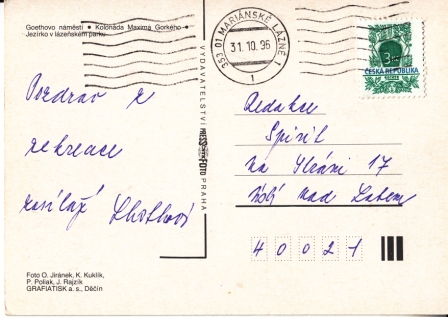 Goethovo náměstí • Kolonáda Maxima Gorkého •
Jezírko v lázeňském parku
Pozdrav z
rekreace
zasílají
VYDAVATELSTVÍ PRESSFOTO PRAHA
353 01 MARIÁNSKÉ LÁZNĚ 1
31.10.96
1
3
ČESKÁ REPUBLIKA
Redakce
Spirit
na Stráni 17
Ústí nad Labem
40021
Foto O. Jiránek, K. Kuklík,
P. Poliak, J. Rajzík
GRAFIATISK a. s., Děčín